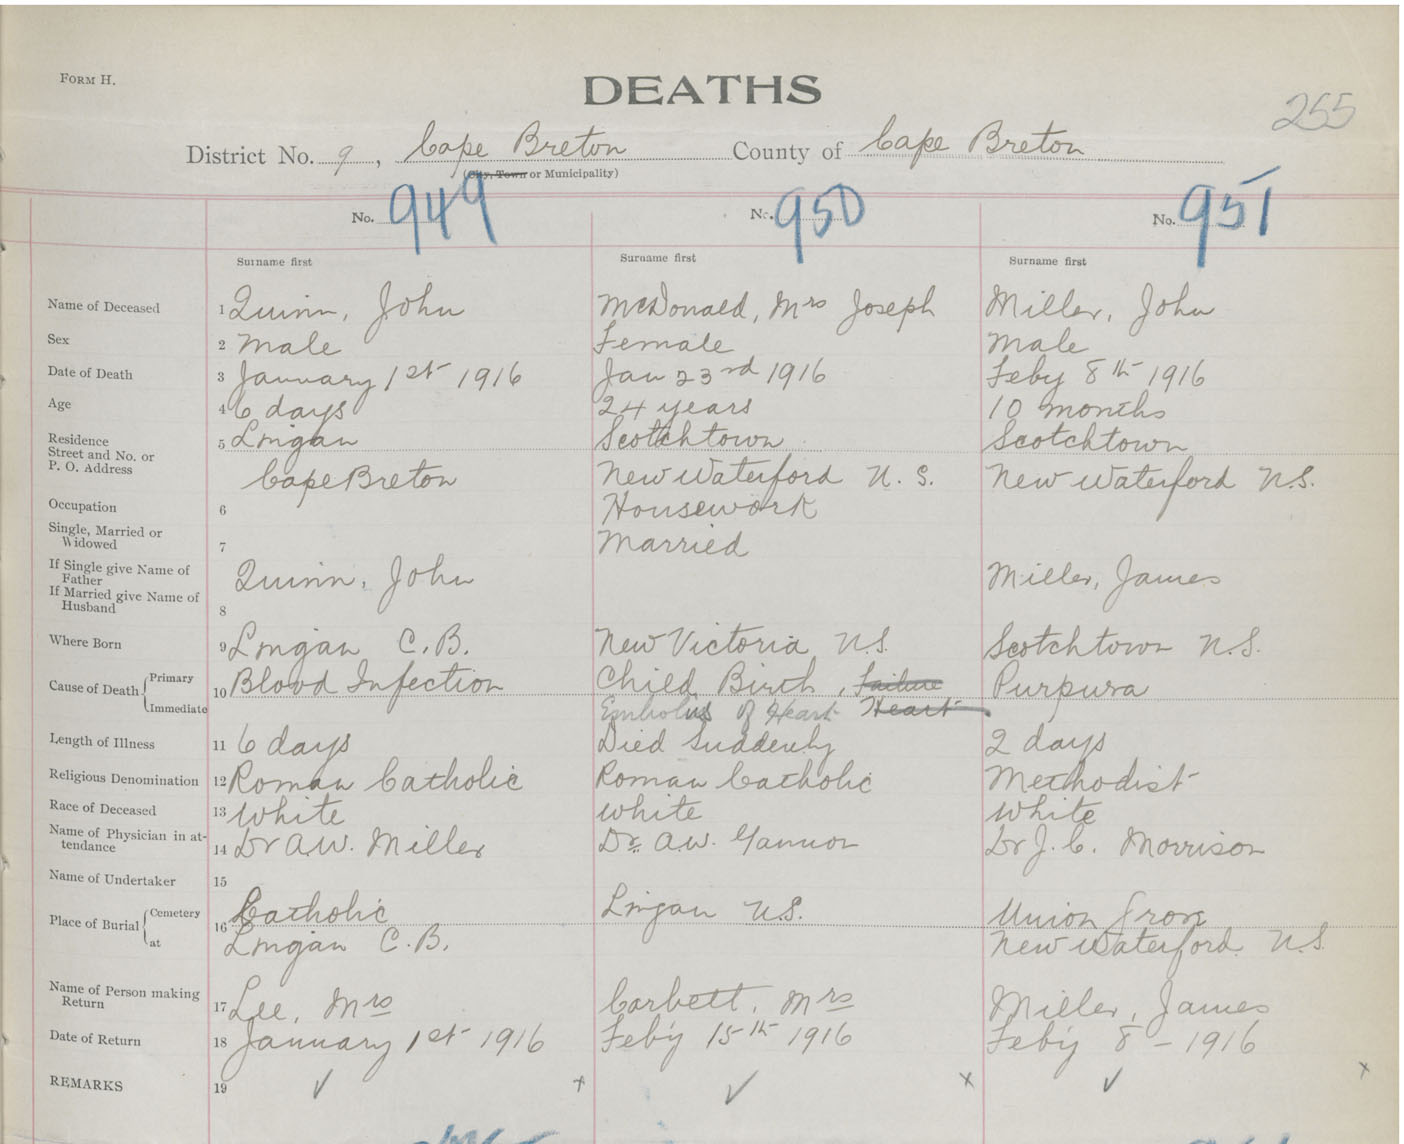 FORM H.
DEATHS
255
District No. 9, Cape Breton County of Cape Breton
(City, Town or Municipality)
No. 949 No. 950 No. 951
Surname first Surname first Surname first
Name of Deceased 1 Quinn, John McDonald, Mrs Joseph Miller, John
Sex 2 Male Female Male
Date of Death 3 January 1st 1916 Jan 23rd 1916 Feby 8th 1916
Age 4 6 days 24 years 10 months
Residence 5 Lingan Scotchtown Scotchtown
Street and No. or
P. O. Address Cape Breton New Waterford N. S. New Waterford N.S.
Occupation 6 Housework
Single, Married or
Widowed 7 Married
If Single give Name of
Father Quinn, John Miller, James
If Married give Name of
Husband 8
Where Born 9 Lingan C.B. New Victoria N.S. Scotchtown N.S.
Cause of Death { Primary 10 Blood Infection Child Birth, Failure Purpura
Immediate Embolus of Heart Heart
Length of Illness 11 6 days Died Suddenly 2 days
Religious Denomination 12 Roman Catholic Roman Catholic Methodist
Race of Deceased 13 White White White
Name of Physician in at-
tendance 14 Dr A.W. Miller Dr. A.W. Gannon Dr J. C. Morrison
Name of Undertaker 15
Place of Burial { Cemetery 16 Catholic Lingan N.S. Union Grove
at Lingan C.B. New Waterford N.S
Name of Person making
Return 17 Lee, Mrs Corbett, Mrs Miller, James
Date of Return 18 January 1st 1916 Feb'y 15th 1916 Feb'y 8 - 1916
REMARKS 19 ✓ x ✓ x ✓ x